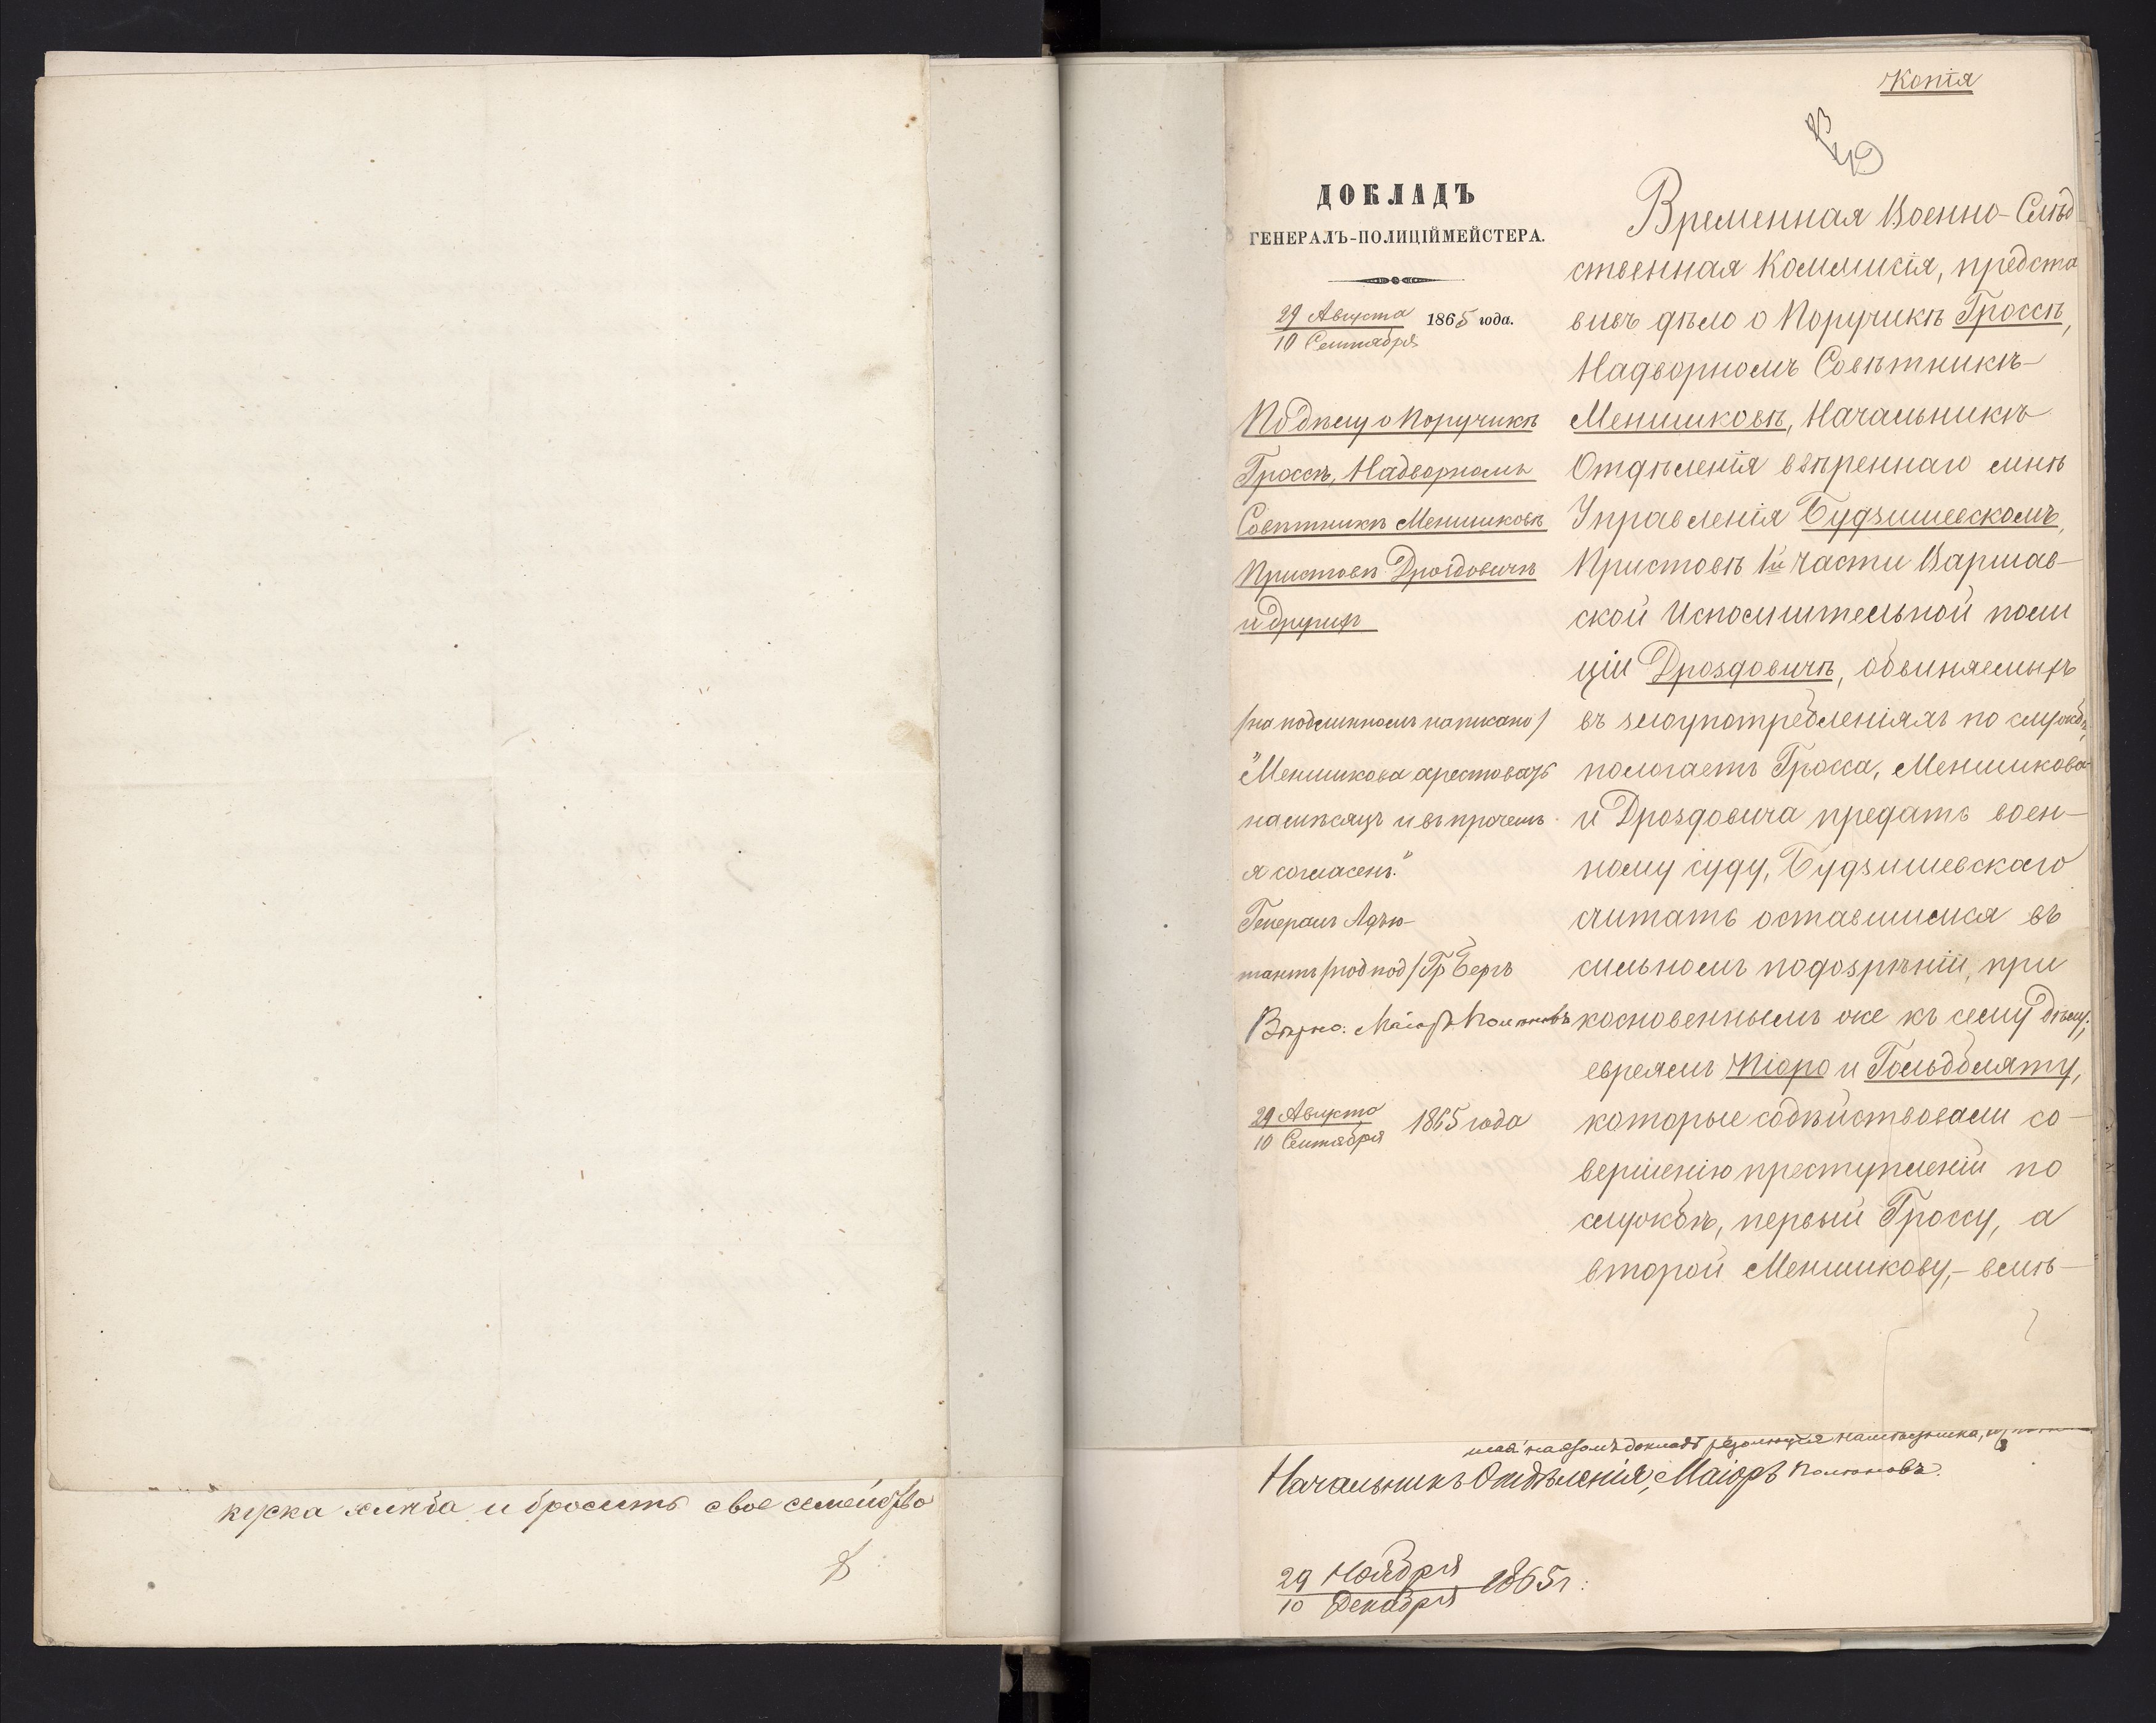 куска хлѣба и бросить свое семейство
Копія
ДОКЛАДЪ
ГЕНЕРАЛЪ-ПОЛИЦІЙМЕЙСТЕРА.
29 Августа
10 Сентября
1865 года.
По дѣлу о Поручикѣ
Гроссѣ, Надворномъ
Совѣтникѣ Меншиковѣ
Приставѣ Дроздовичѣ
и другихъ
/на подлинномъ написано/
"Меншикова арестовать
на мѣсяцъ и въ прочемъ
я согласенъ."
Генералъ Адъю-
тантъ /подпод/ Гр Бергъ
Вѣрно: Маіоръ
29 Августа
10 Сентября
1865 года
Временная Военно-Слѣд
ственная Коммисія, предста
вивъ дѣло о Поручикѣ Гроссѣ,
Надворномъ Совѣтникѣ
Меншиковѣ, Начальникѣ
Отдѣленія ввѣреннаго мнѣ
Управленія Будзишевскомъ,
Приставѣ 1й части Варшав-
ской Исполнительной поли
ціи Дроздовичѣ, обвиняемыхъ
въ злоупотребленіяхъ по службѣ,
пологаетъ Гросса, Меншикова
и Дроздовича предать воен-
ному суду, Будзишевскаго
считать оставшимся въ
сильномъ подозрѣніи, при
косновеннымъ же къ сему дѣлу;
евреямъ Піоро и Гольдбляту,
которые содѣйствовали со-
вершенію преступленій по
службѣ, первый Гроссу, а
второй Меншикову,- вмѣ-
на семъ докладѣ резолюція Намѣстника,
Начальникъ Отдѣленія, Маіоръ
29 Ноября
10 Декабря
1865 г: